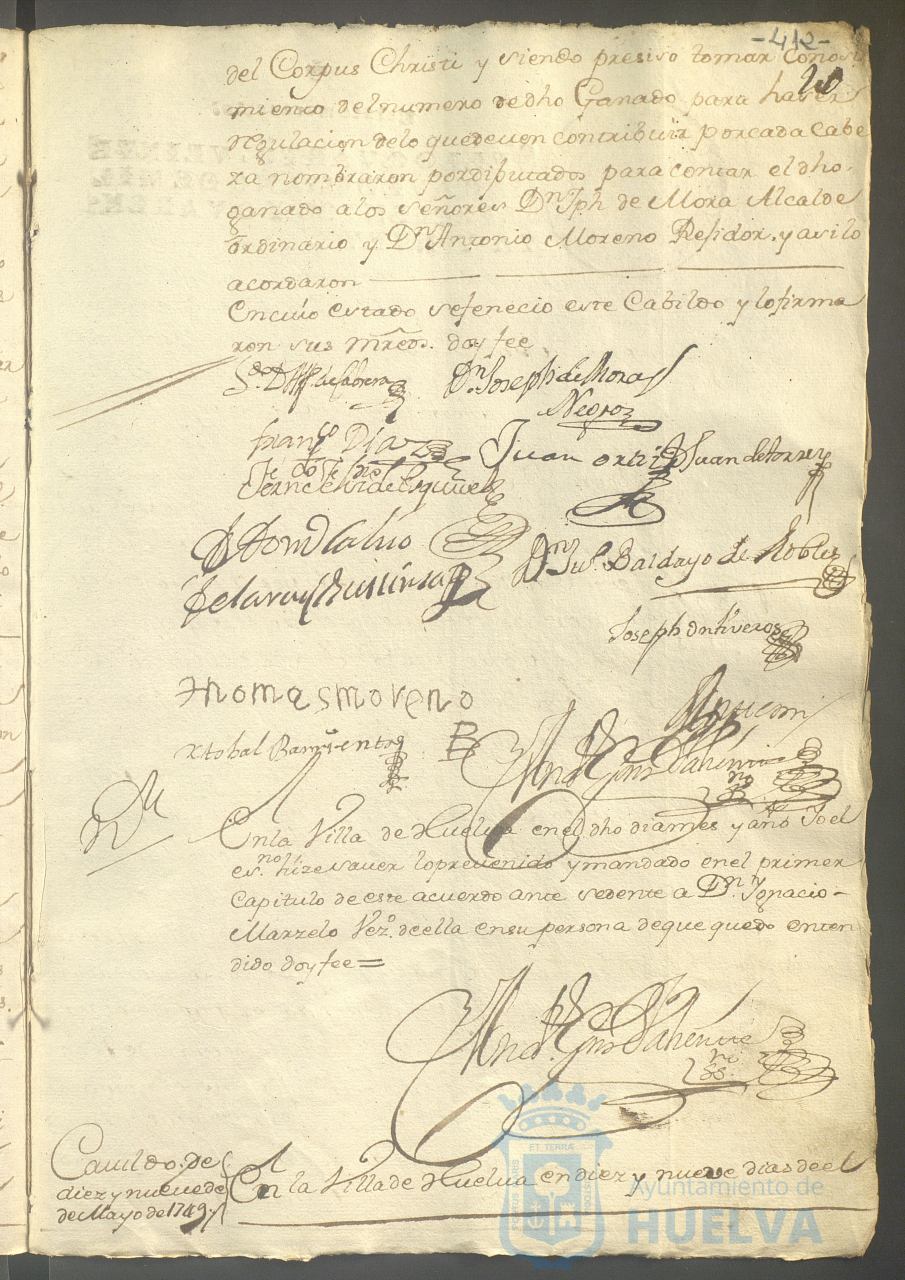 -412-
20
del Corpus Christi y siendo presiso tomar conosi
miento del numero de dho Ganado para haser
regulacion delo quedeven contribuir porcada Cabe
za nombraron pordiputados para contar el dho
ganado alos señores Dn Jph de Mora Alcalde
ordinario y Dn Antonio Moreno Residor. y asi lo
acordaron
En cuio estado sefenecio este Cabildo y lofirma
ron sus mrzedes. doy fee
Dn Joseph de Mora
Negro
Franco Diaz
Juan orti
Juan de torres
Dn Jul. Baldayo de Robles
Joseph ontiveros
thomas moreno
Xtobal Barrientos
En la Villa de Huelva en el dho dia mes y año Yo el
esno. hize saver loprevenido y mandado en el primer
Capitulo de este acuerdo ante sedente a Dn Ygnacio
Marzelo Vezo. deella ensu persona deque quedo enten
dido doy fee =
Cavildo. de
diez y nuebe de
de Mayo de 1749.
En la Villa de Huelva en diez y nueve dias de el
ET TERRA
Ayuntamiento de
HUELVA